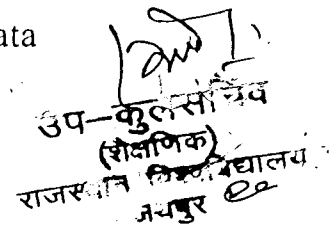 ata
उप-कुलसचिव
(शैक्षणिक)
राजस्थान विश्वविद्यालय
जयपुर